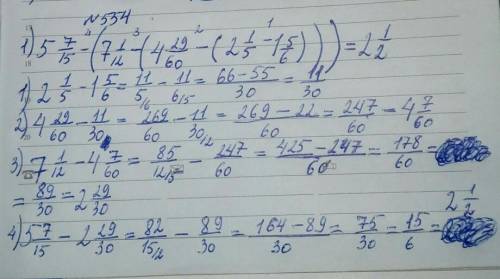 №534
1) 5 7/15 - (7 1/12 - (4 29/60 - (2 1/5 - 1 5/6))) = 2 1/2
1) 2 1/5 - 1 5/6 = 11/5 - 11/6 = 66-55/30 = 11/30
2) 4 29/60 - 11/30 = 269/60 - 11/30 = 269-22/60 = 247/60 = 4 7/60
3) 7 1/12 - 4 7/60 = 85/12 - 247/60 = 425-247/60 = 178/60 =
= 89/30 = 2 29/30
4) 5 7/15 - 2 29/30 = 82/15 - 89/30 = 164-89/30 = 75/30 = 15/6 = 2 1/2